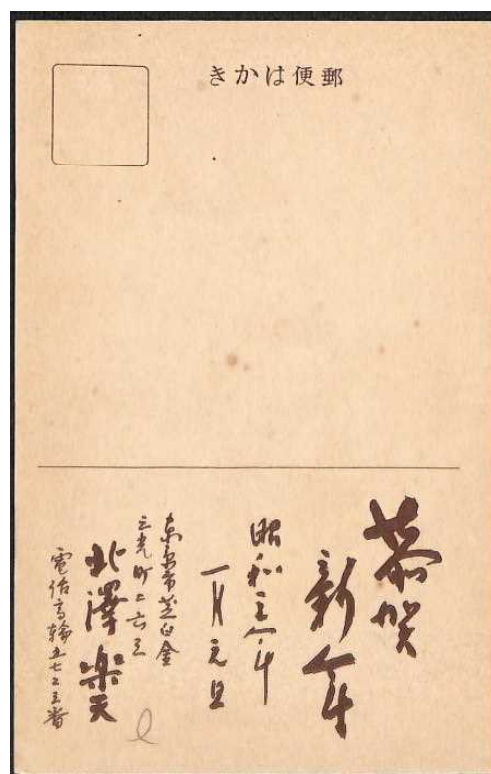 郵便はかき
恭賀
新年
昭和三年
一月元旦
東京市芝白金
三光町二六三
北澤楽天
電話高輪五七二三番